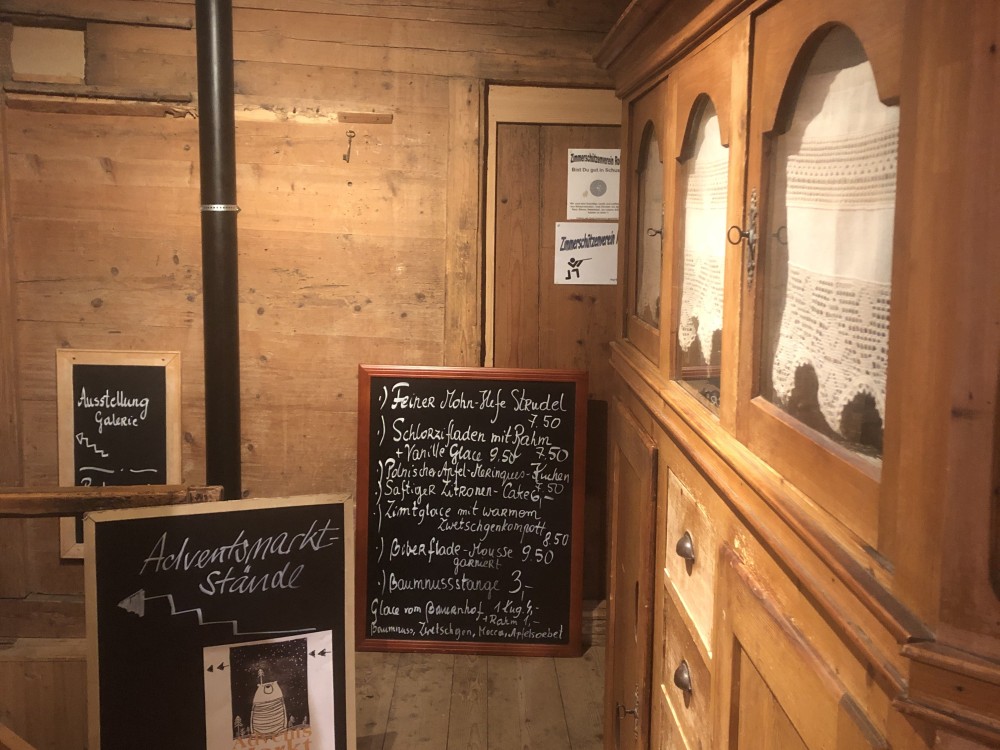 Zimmerschützenverein Ro
Bist Du gut in Schuss
Zimmerschützenverein R
Ausstellung
Galerie
·) Feiner Mohn-Hefe Strudel
7.50
·) Schlorzifladen mit Rahm
+ Vanille Glace 9.50 7.50
·) Polnischer Apfel-Meringues-Kuchen
7.50
·) Saftiger Zitronen-Cake 6,-
·) Zimtglace mit warmem
Zwetschgenkompott
8.50
·) Biberflade-Mousse 9.50
garniert
·) Baumnussstange 3,-
Glace vom Bauernhof 1 Kug. 4,-
+ Rahm 1,-
Baumnuss, Zwetschgen, Mocca,
Adventsmarkt-
Stände